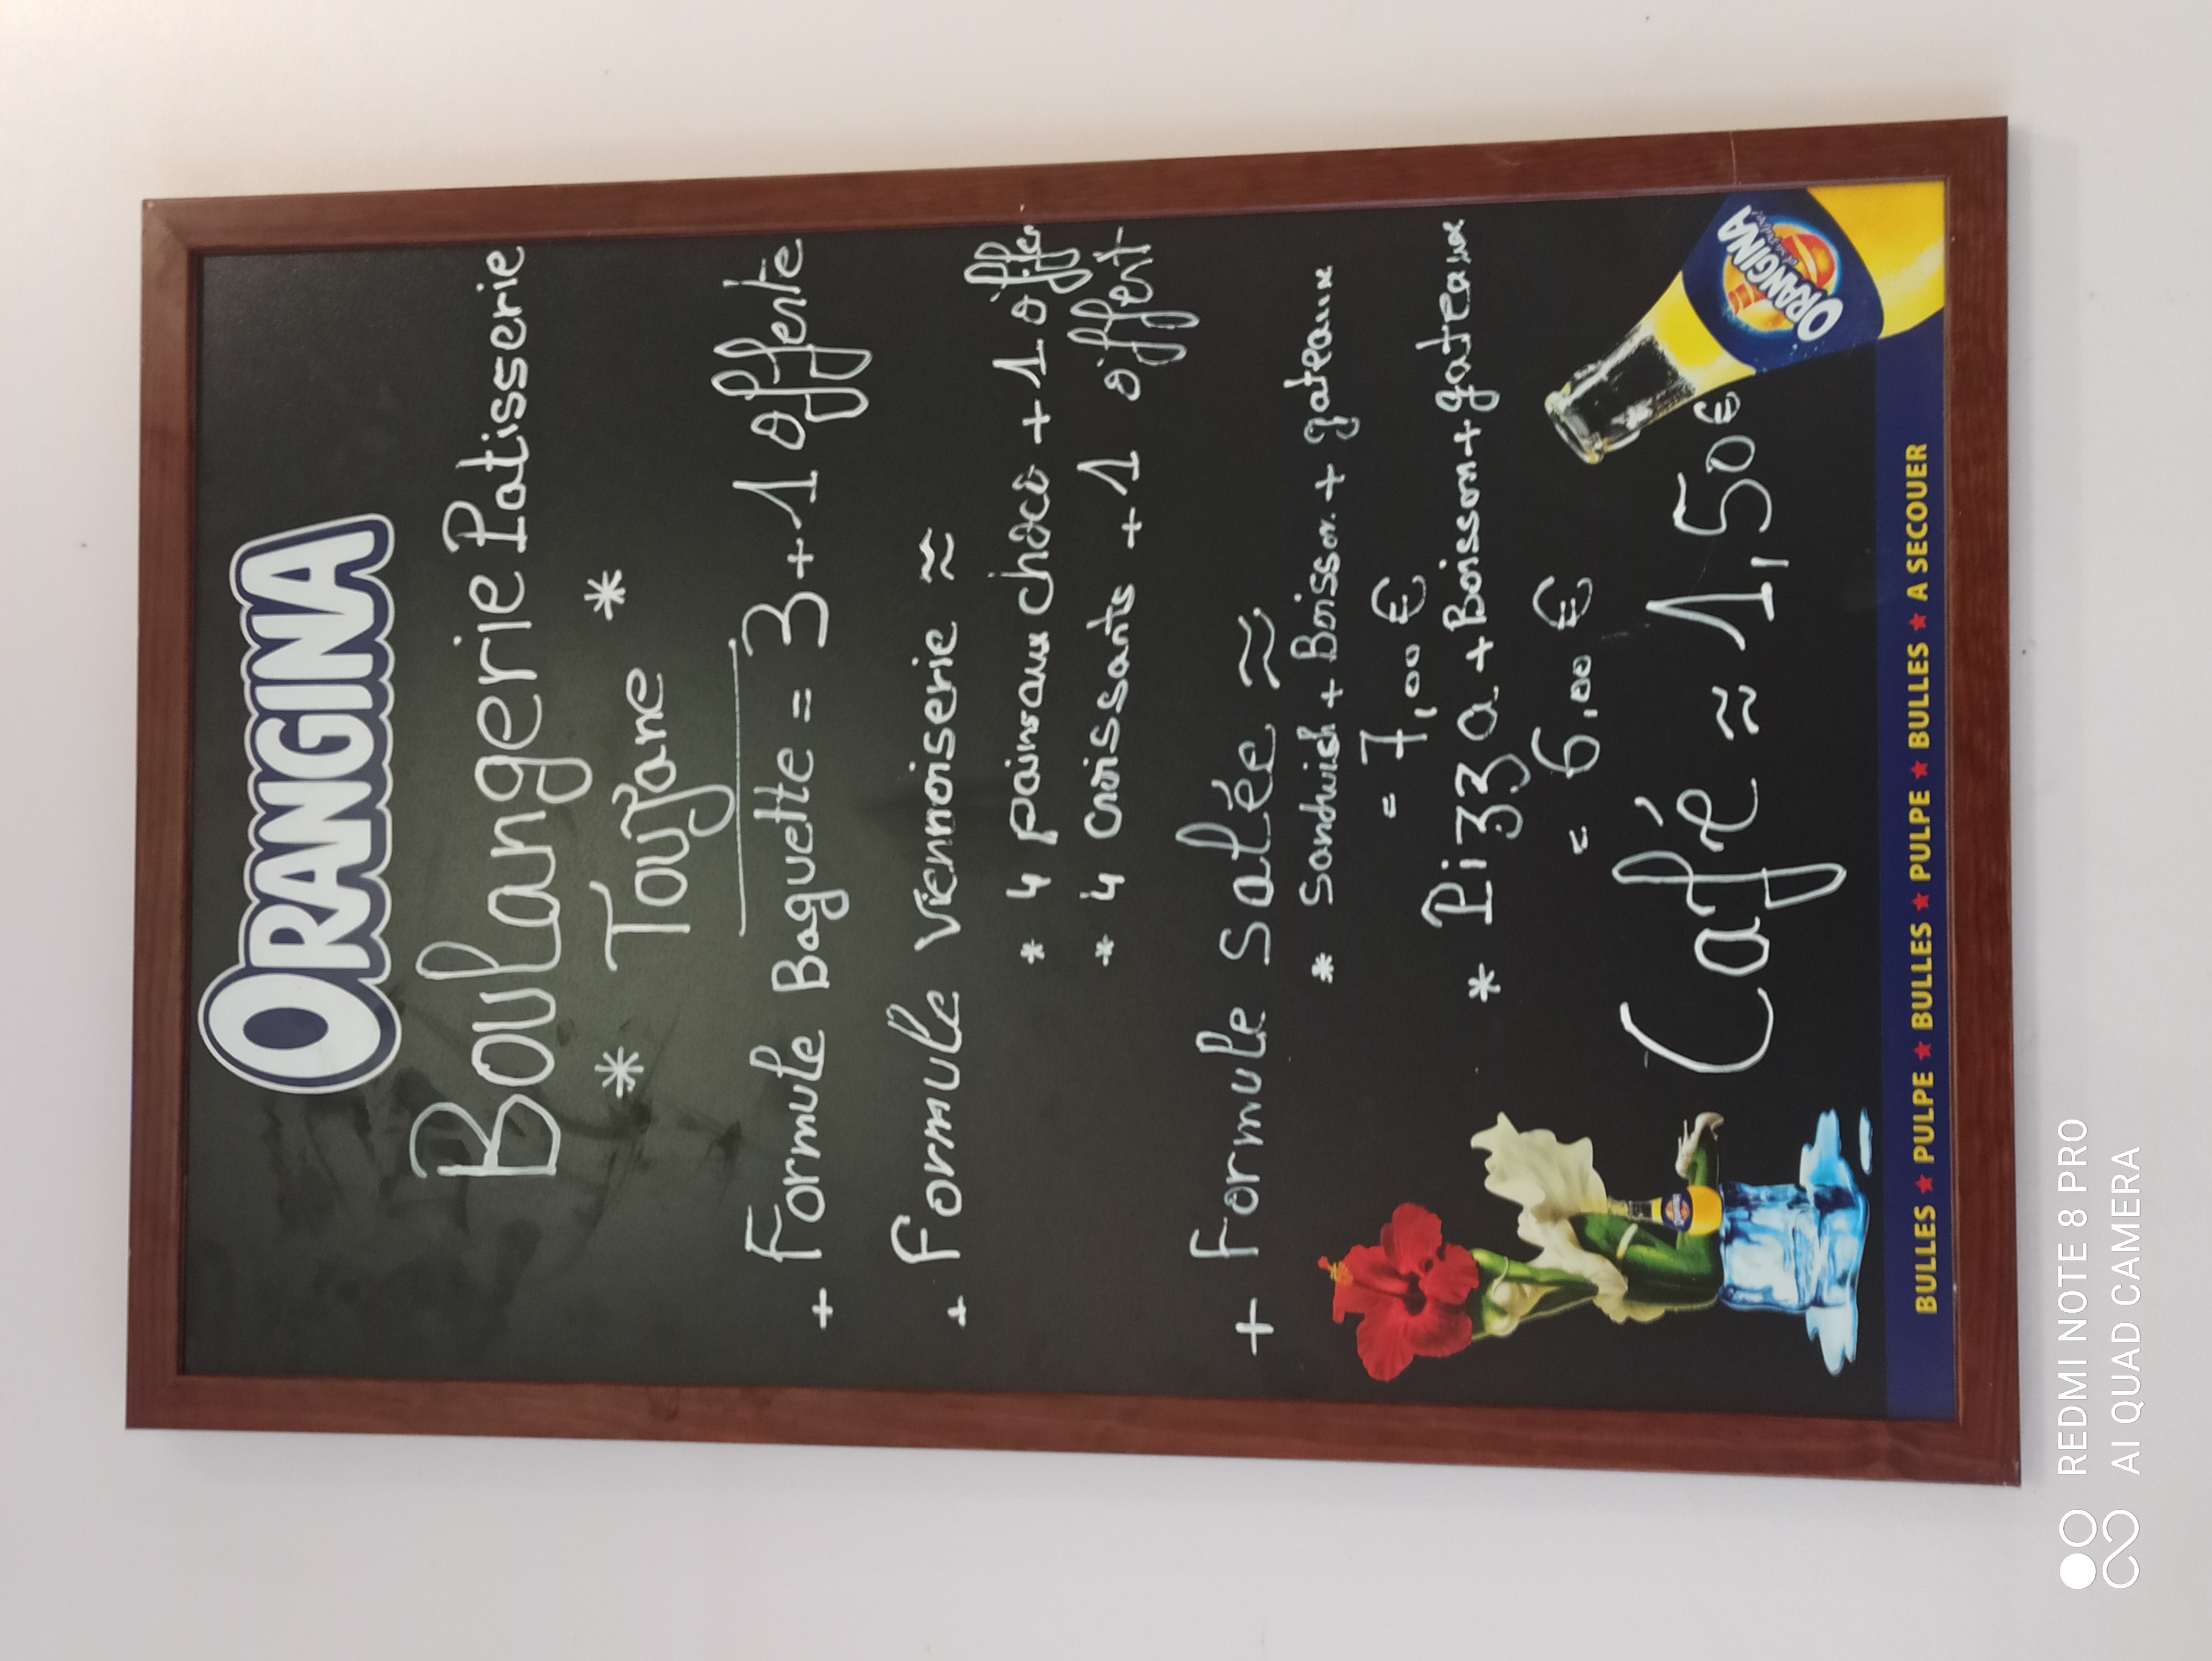 ORANGINA
Boulangerie Patisserie
* Toujane *
+ Formule Baguette = 3+1 offerte
+ Formule viennoiserie ≈
* 4 pains au choco + 1 offer
* 4 croissants + 1 offert
+ Formule salée ≈
* sandwich + Boisson + gateaux
= 7,00 €
* Pizza + Boisson + gateaux
= 6,00 €
Café ≈ 1,50 €
ORANGINA
BULLES ★ PULPE ★ BULLES ★ PULPE ★ BULLES ★ A SECOUER
REDMI NOTE 8 PRO
AI QUAD CAMERA